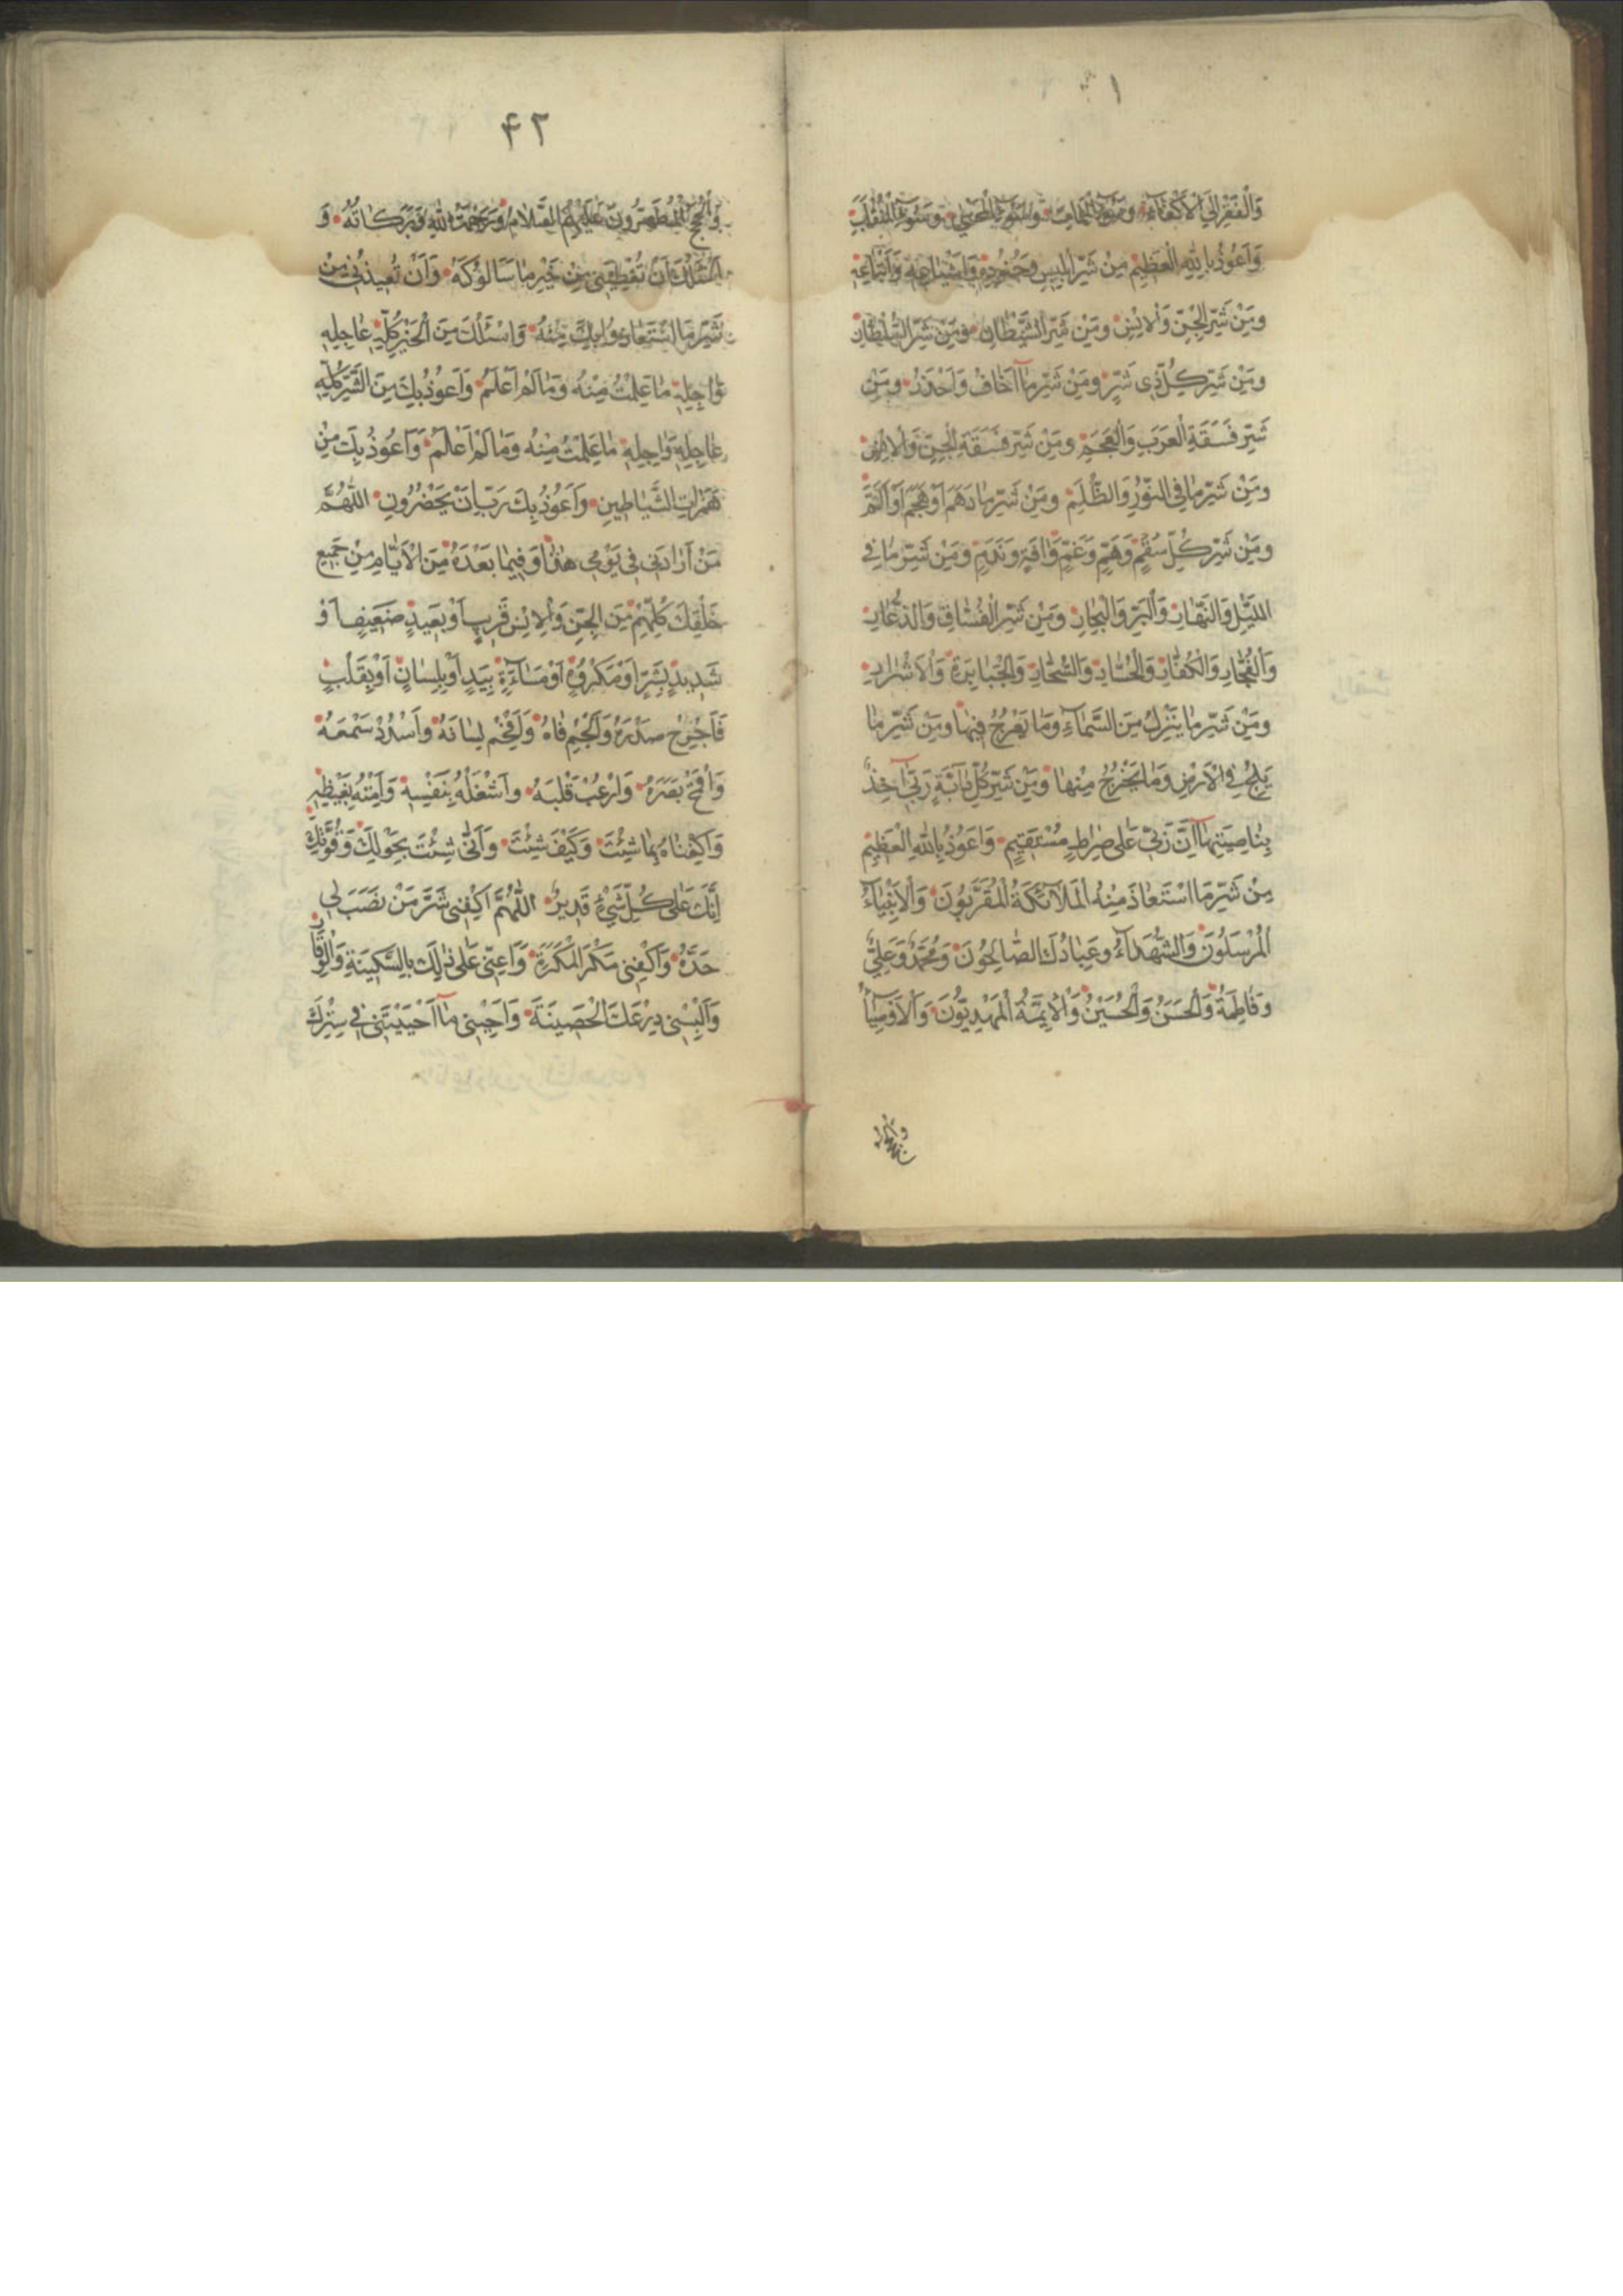 وَالْفَقْرِ اِلَى الْاَكْفَاءِ وَسُوءِ الْمَمَاتِ وَسُوءِ الْمَحْيٰى وَسُوءِ الْمُنْقَلَبِ
وَاَعُوذُ بِاللّٰهِ الْعَظِيْمِ مِنْ شَرِّ اِبْلِيسَ وَجُنُودِهِ وَاَشْيَاعِهِ وَاَتْبَاعِهِ
وَمِنْ شَرِّ الْجِنِّ وَالْاِنْسِ وَمِنْ شَرِّ الشَّيْطَانِ وَمِنْ شَرِّ السُّلْطَانِ
وَمِنْ شَرِّ كُلِّ ذِى شَرٍّ وَمِنْ شَرِّ مَا اَخَافُ وَاَحْذَرُ وَمِنْ
شَرِّ فَسَقَةِ الْعَرَبِ وَالْعَجَمِ وَمِنْ شَرِّ فَسَقَةِ الْجِنِّ وَالْاِنْسِ
وَمِنْ شَرِّ مَا فِى النُّوْرِ وَالظُّلَمِ وَمِنْ شَرِّ مَا دَهَمَ اَوْ هَجَمَ اَوْ اَلَمَّ
وَمِنْ شَرِّ كُلِّ سُقْمٍ وَهَمٍّ وَغَمٍّ وَاٰفَةٍ وَنَدَمٍ وَمِنْ شَرِّ مَا فِى
اللَّيْلِ وَالنَّهَارِ وَالْبَرِّ وَالْبِحَارِ وَمِنْ شَرِّ الْفُسَّاقِ وَالدُّعَّارِ
وَالْفُجَّارِ وَالْكُفَّارِ وَالْحُسَّادِ وَالسُّحَّارِ وَالْجَبَابِرَةِ وَالْاَشْرَارِ
وَمِنْ شَرِّ مَا يَنْزِلُ مِنَ السَّمَاءِ وَمَا يَعْرُجُ فِيهَا وَمِنْ شَرِّ مَا
يَلِجُ فِى الْاَرْضِ وَمَا يَخْرُجُ مِنْهَا وَمِنْ شَرِّ كُلِّ دَابَّةٍ رَبِّى اٰخِذٌ
بِنَاصِيَتِهَا اِنَّ رَبِّى عَلٰى صِرَاطٍ مُسْتَقِيْمٍ وَاَعُوْذُ بِاللّٰهِ الْعَظِيْمِ
مِنْ شَرِّ مَا اسْتَعَاذَ مِنْهُ الْمَلَائِكَةُ الْمُقَرَّبُوْنَ وَالْاَنْبِيَاءُ
الْمُرْسَلُوْنَ وَالشُّهَدَاءُ وَعِبَادُكَ الصَّالِحُوْنَ وَمُحَمَّدٌ وَعَلِىٌّ
وَفَاطِمَةُ وَالْحَسَنُ وَالْحُسَيْنُ وَالْاَئِمَّةُ الْمَهْدِيُّوْنَ وَالْاَوْصِيَاءُ
۴۲
وَالْحُجَجُ الْمُطَهَّرُوْنَ عَلَيْهِمُ السَّلَامُ وَرَحْمَةُ اللّٰهِ وَبَرَكَاتُهُ وَ
اَسْئَلُكَ اَنْ تُعْطِيَنِى مِنْ خَيْرِ مَا سَاَلُوْكَهُ وَاَنْ تُعِيذَنِى مِنْ
شَرِّ مَا اسْتَعَاذُوْا بِكَ مِنْهُ وَاَسْئَلُكَ مِنَ الْخَيْرِ كُلِّهِ عَاجِلِهِ
وَاٰجِلِهِ مَا عَلِمْتُ مِنْهُ وَمَا لَمْ اَعْلَمْ وَاَعُوْذُ بِكَ مِنَ الشَّرِّ كُلِّهِ
عَاجِلِهِ وَاٰجِلِهِ مَا عَلِمْتُ مِنْهُ وَمَا لَمْ اَعْلَمْ وَاَعُوْذُ بِكَ مِنْ
هَمَزَاتِ الشَّيَاطِيْنِ وَاَعُوْذُ بِكَ رَبِّ اَنْ يَحْضُرُونِ اللّٰهُمَّ
مَنْ اَرَادَنِى فِى يَوْمِى هٰذَا وَفِيْمَا بَعْدَهُ مِنَ الْاَيَّامِ مِنْ جَمِيْعِ
خَلْقِكَ كُلِّهِمْ مِنَ الْجِنِّ وَالْاِنْسِ قَرِيْبٍ اَوْ بَعِيْدٍ ضَعِيْفٍ اَوْ
شَدِيْدٍ بِشَرٍّ اَوْ مَكْرُوْهٍ اَوْ مَسَاءَةٍ بِيَدٍ اَوْ بِلِسَانٍ اَوْ بِقَلْبٍ
فَاَحْرِجْ صَدْرَهُ وَاَلْجِمْ فَاهُ وَاَفْحِمْ لِسَانَهُ وَاسْدُدْ سَمْعَهُ
وَاقْمَحْ بَصَرَهُ وَارْعُبْ قَلْبَهُ وَاشْغَلْهُ بِنَفْسِهِ وَاَمِتْهُ بِغَيْظِهِ
وَاكْفِنَاهُ بِمَا شِئْتَ وَكَيْفَ شِئْتَ وَاَنّٰى شِئْتَ بِحَوْلِكَ وَقُوَّتِكَ
اِنَّكَ عَلٰى كُلِّ شَىْءٍ قَدِيْرٌ اللّٰهُمَّ اكْفِنِى شَرَّ مَنْ نَصَبَ لِى
حَدَّهُ وَاكْفِنِى مَكْرَ الْمَكَرَةِ وَاَعِنِّى عَلٰى ذٰلِكَ بِالسَّكِيْنَةِ وَالْوَقَارِ
وَاَلْبِسْنِى دِرْعَكَ الْحَصِيْنَةَ وَاَحْيِنِى مَا اَحْيَيْتَنِى فِى سِتْرِكَ